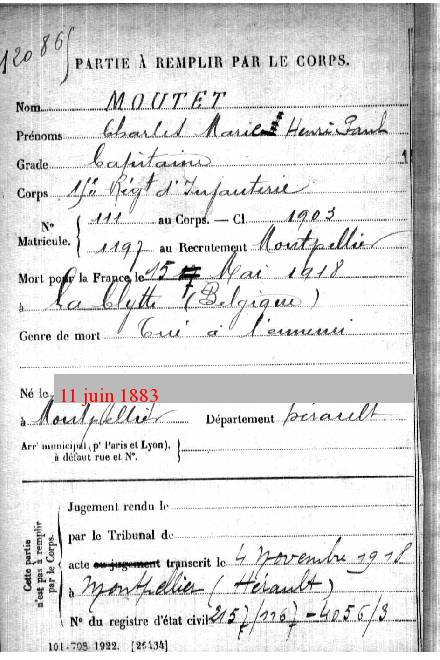 12086
PARTIE À REMPLIR PAR LE CORPS.
Nom MOUTET
Prénoms Charles Marie Henri Paul
Grade Capitaine
Corps 15e Régt d'Infanterie
N° Matricule. 111 au Corps. — Cl. 1903
1197 au Recrutement Montpellier
Mort pour la France le 15 Mai 1918
à La Clytte (Belgique)
Genre de mort Tué à l'ennemi
Né le 11 juin 1883
à Montpellier Département Hérault
Arrt municipal (pr Paris et Lyon),
à défaut rue et N°.
Cette partie n'est pas à remplir par le Corps.
Jugement rendu le
par le Tribunal de
acte ou jugement transcrit le 4 Novembre 1918
à Montpellier (Hérault)
N° du registre d'état civil 2157/1167-4056/3
101-708 1922. [26434]